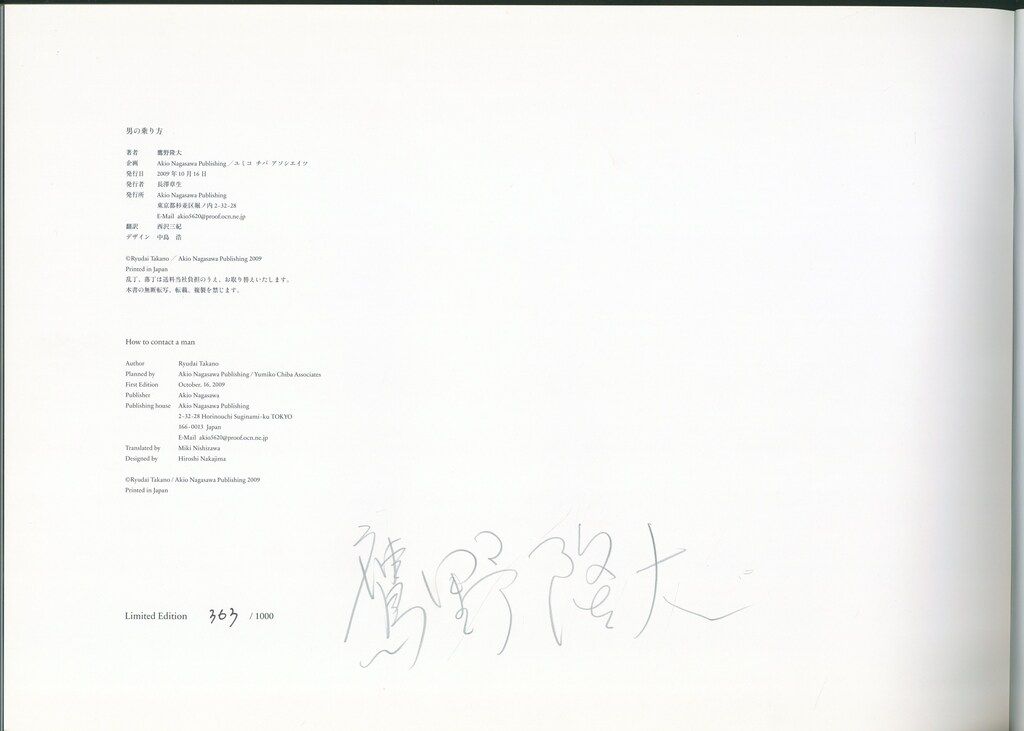 男の乗り方
著者 鷹野隆大
企画 Akio Nagasawa Publishing／ユミコ チバ アソシエイツ
発行日 2009 年 10 月 16 日
発行者 長澤章生
発行所 Akio Nagasawa Publishing
東京都杉並区堀ノ内 2-32-28
E-Mail akio5620@proof.ocn.ne.jp
翻訳 西沢三紀
デザイン 中島 浩
©Ryudai Takano ／ Akio Nagasawa Publishing 2009
Printed in Japan
乱丁、落丁は送料当社負担のうえ、お取り替えいたします。
本書の無断転写、転載、複製を禁じます。
How to contact a man
Author Ryudai Takano
Planned by Akio Nagasawa Publishing / Yumiko Chiba Associates
First Edition October, 16, 2009
Publisher Akio Nagasawa
Publishing house Akio Nagasawa Publishing
2-32-28 Horinouchi Suginami-ku TOKYO
166-0013 Japan
E-Mail akio5620@proof.ocn.ne.jp
Translated by Miki Nishizawa
Designed by Hiroshi Nakajima
©Ryudai Takano / Akio Nagasawa Publishing 2009
Printed in Japan
鷹野隆大
Limited Edition 363 / 1000